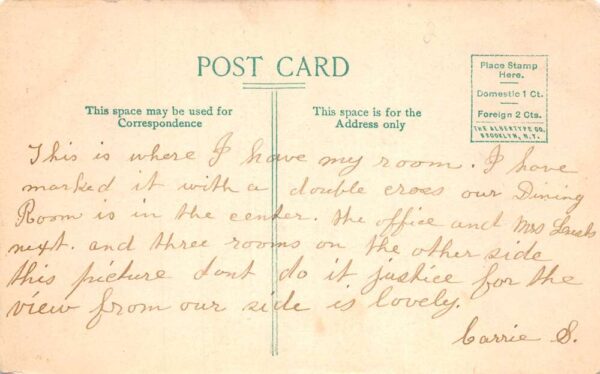 POST CARD
Place Stamp
Here.
Domestic 1 Ct.
Foreign 2 Cts.
THE ALBERTYPE CO.
BROOKLYN, N.Y.
This space may be used for
Correspondence
This space is for the
Address only
This is where I have my room. I have
marked it with a double cross our Dining
Room is in the center. the office and Mrs
next. and three rooms on the other side
this picture dont do it justice for the
view from our side is lovely.
Carrie S.